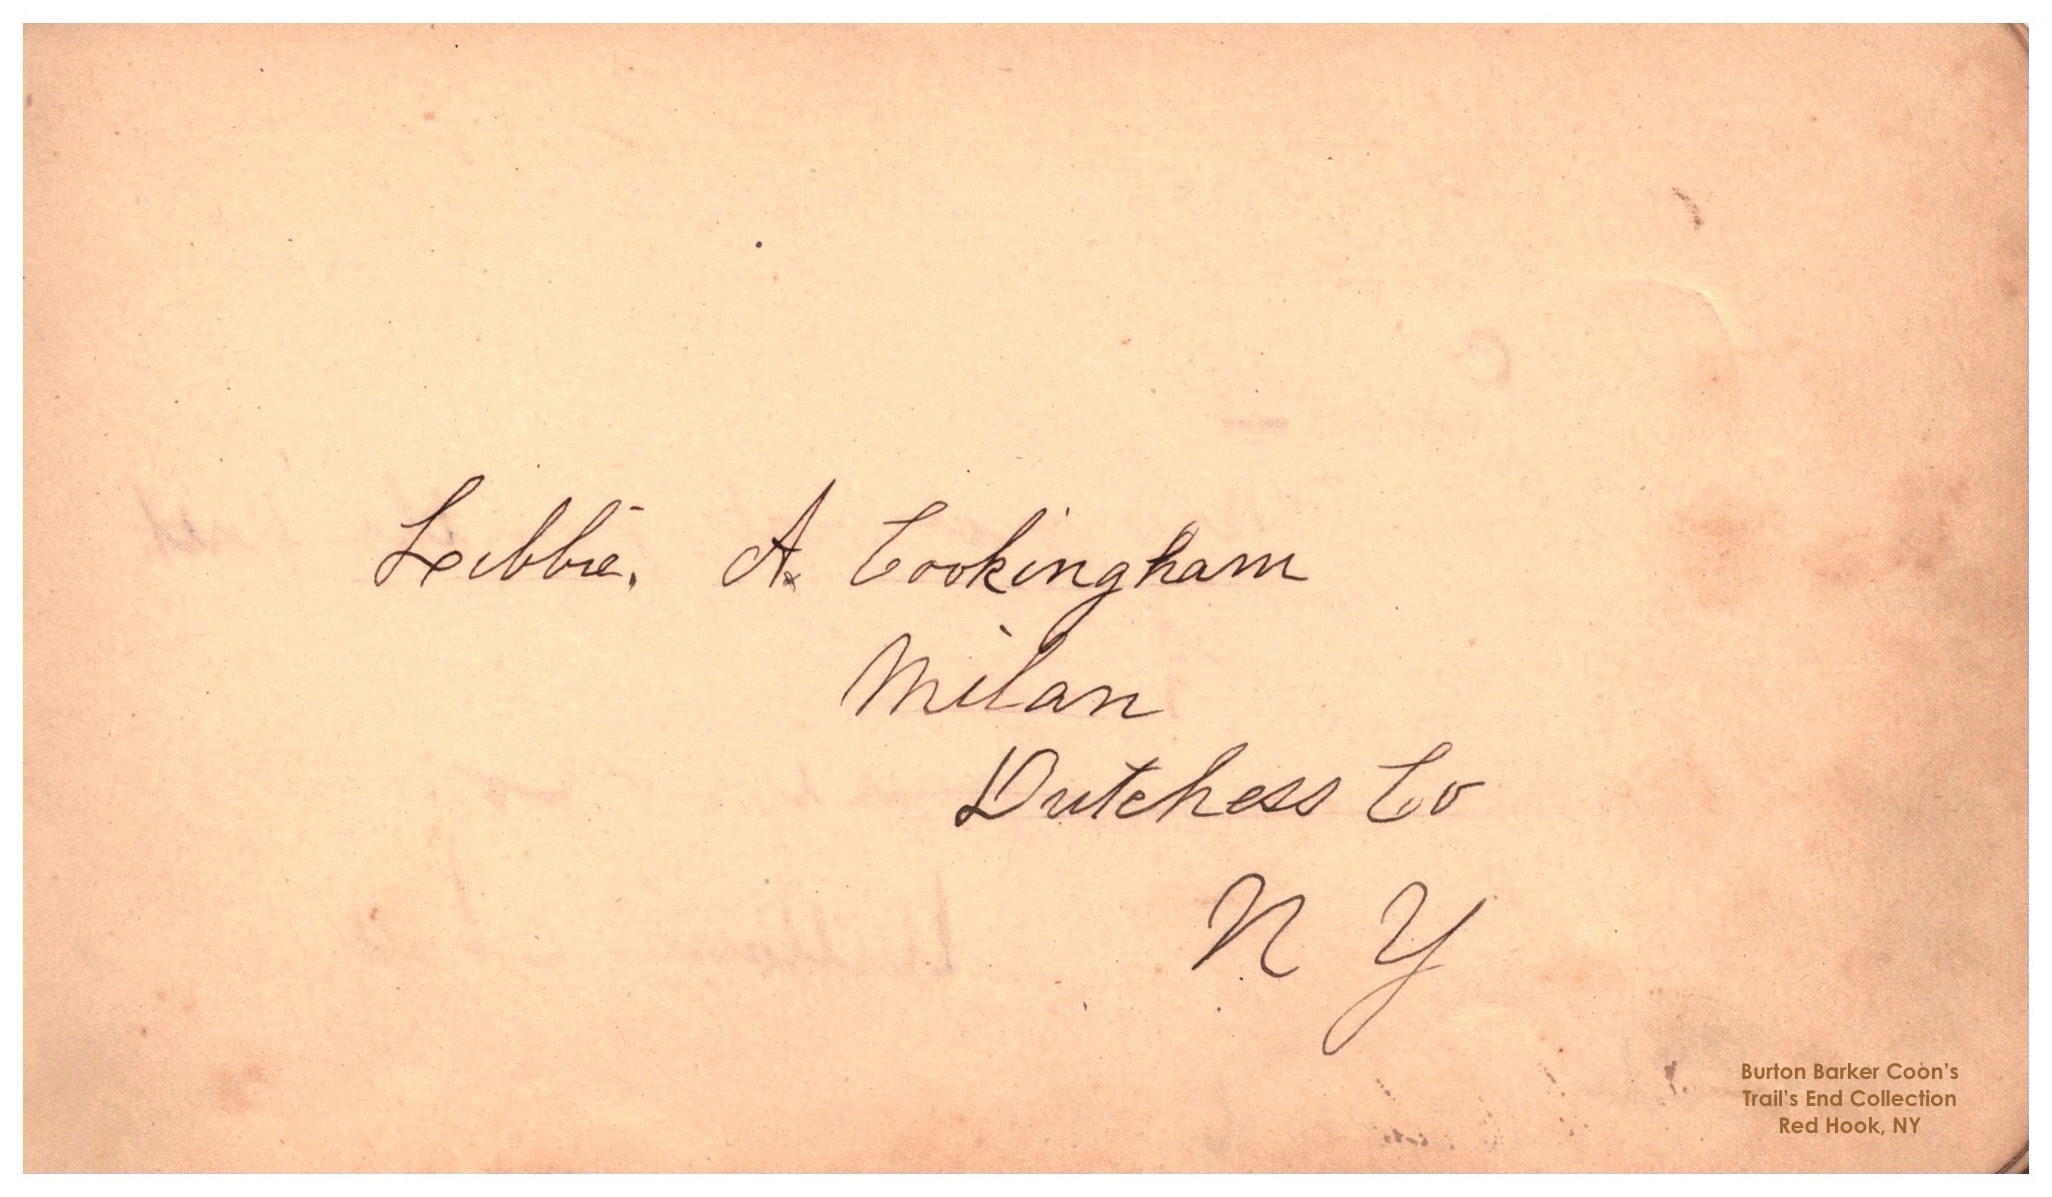 Libbie. A. Cookingham
Milan
Dutchess Co
N Y
Burton Barker Coon's
Trail's End Collection
Red Hook, NY